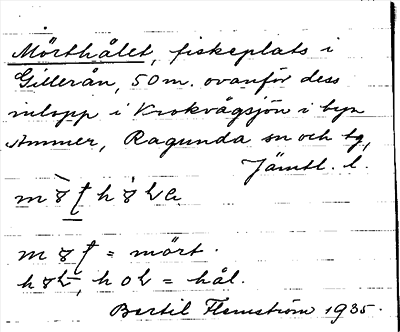 Mörthålet, fiskeplats i
Gillerån, 50 m. ovanför dess
inlopp i Krokvågsjön i byn
Ammer, Ragunda sn och tg,
Jämtl. l.
m
= mört.
= hål.
Bertil Flemström 1935.